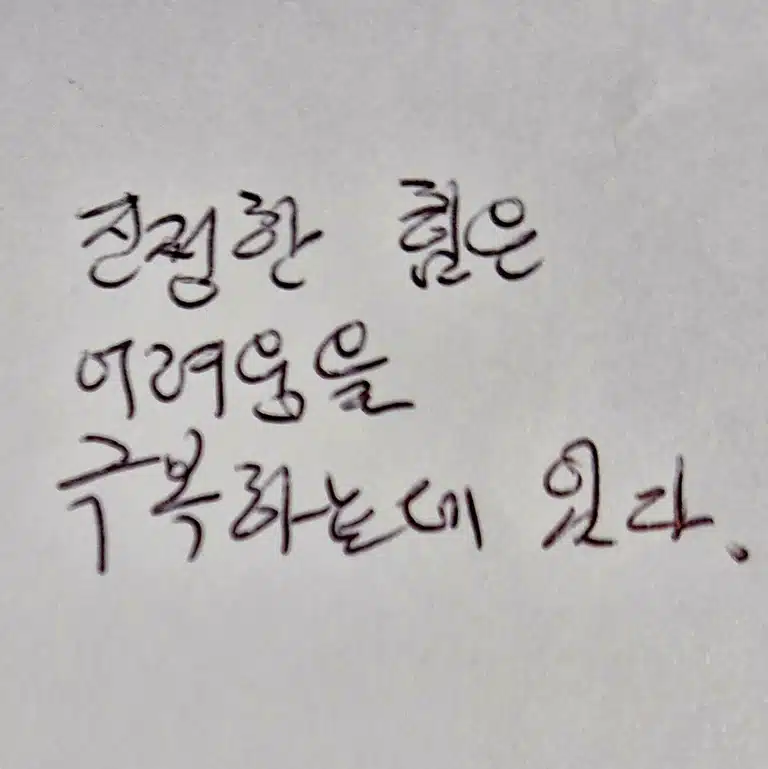 진정한 힘은
어려움을
극복하는데 있다.